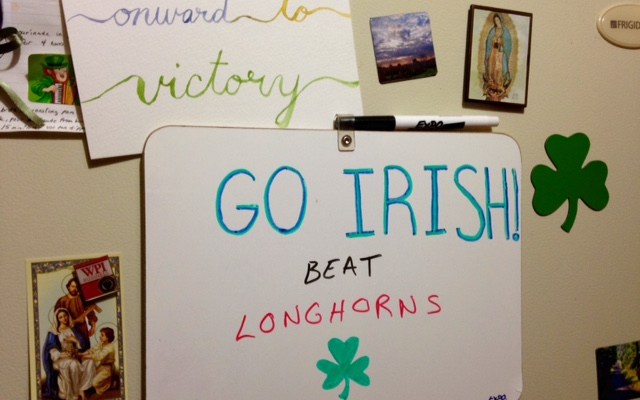 onward to
victory
FRIGID
EXPO
GO IRISH!
BEAT
LONGHORNS
WPI
EXPO